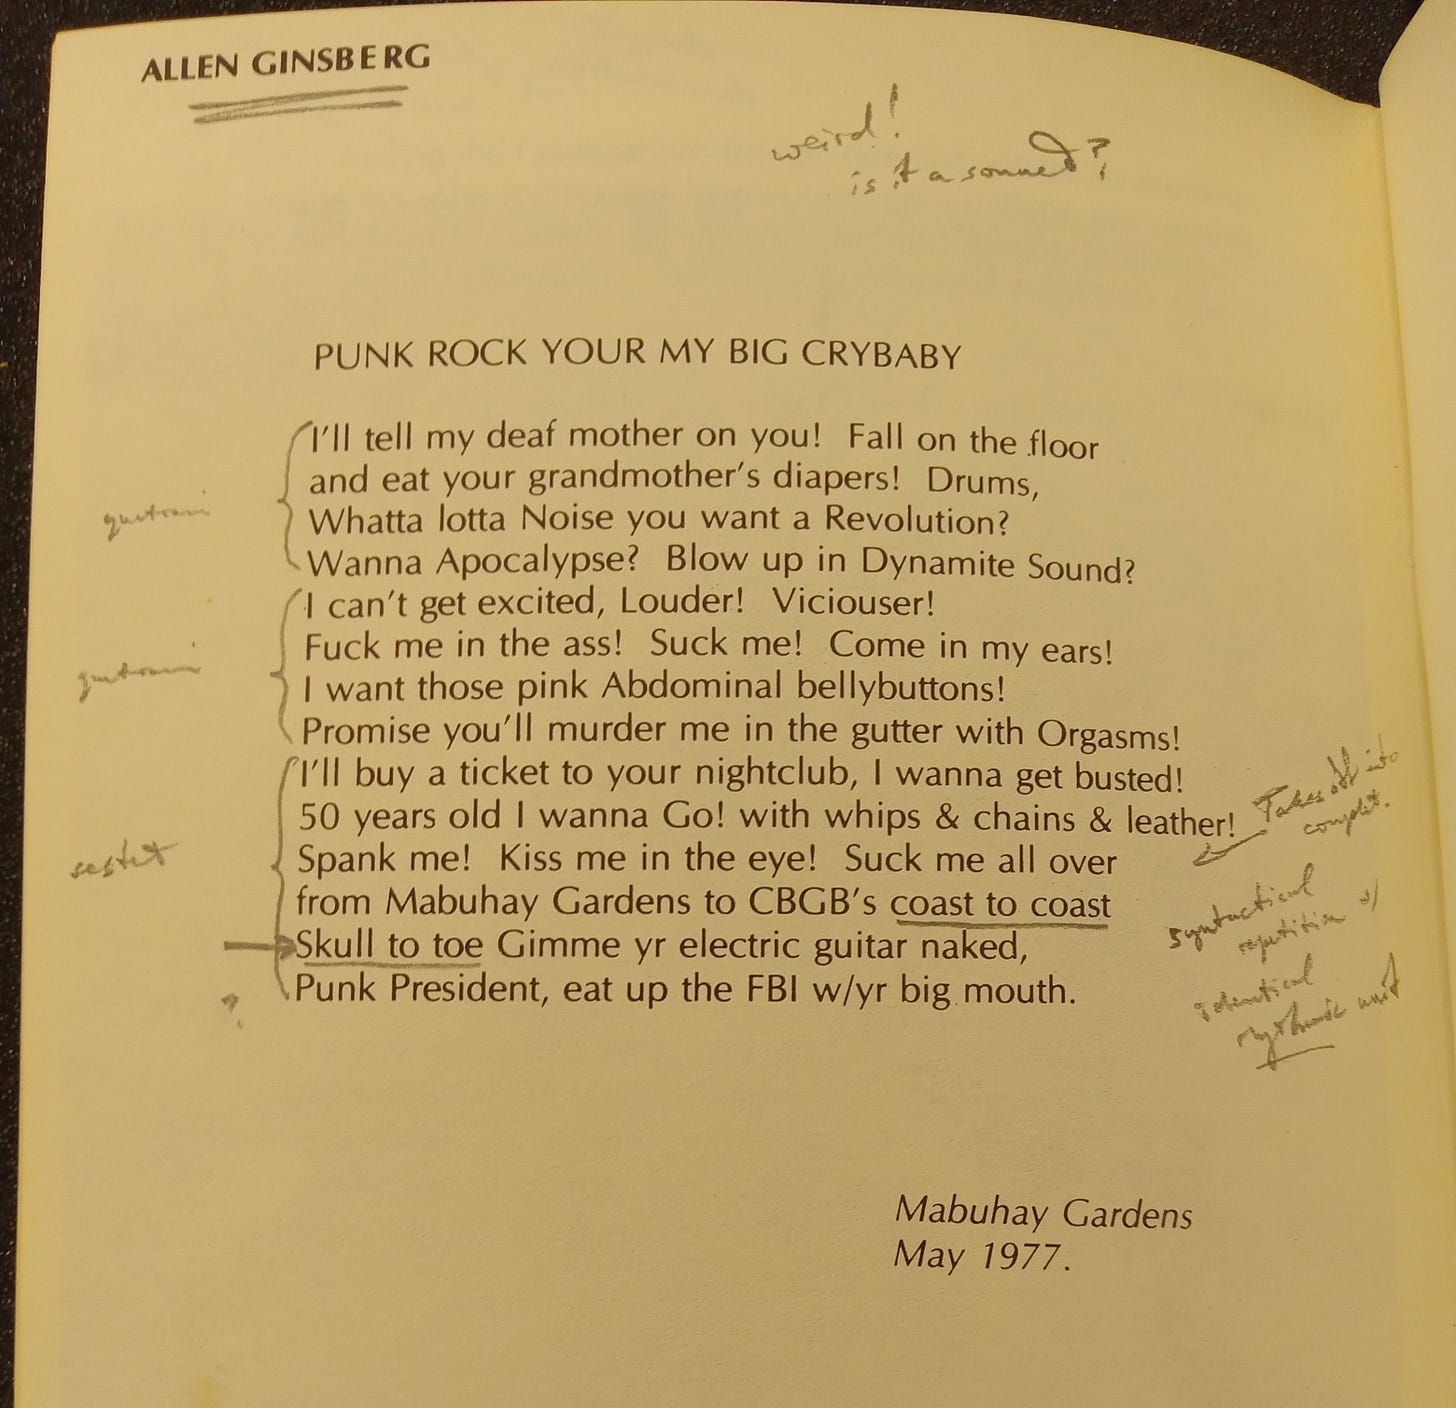 ALLEN GINSBERG
weird!
is it a sonnet?
PUNK ROCK YOUR MY BIG CRYBABY
I'll tell my deaf mother on you! Fall on the floor
and eat your grandmother's diapers! Drums,
quatrain
Whatta lotta Noise you want a Revolution?
Wanna Apocalypse? Blow up in Dynamite Sound?
I can't get excited, Louder! Viciouser!
Fuck me in the ass! Suck me! Come in my ears!
quatrain
I want those pink Abdominal bellybuttons!
Promise you'll murder me in the gutter with Orgasms!
I'll buy a ticket to your nightclub, I wanna get busted!
50 years old I wanna Go! with whips & chains & leather!
Takes off into
couplet.
sestet
Spank me! Kiss me in the eye! Suck me all over
from Mabuhay Gardens to CBGB's coast to coast
Skull to toe Gimme yr electric guitar naked,
?
Punk President, eat up the FBI w/yr big mouth.
syntactical
repetition w/
identical
rhythmic unit
Mabuhay Gardens
May 1977.